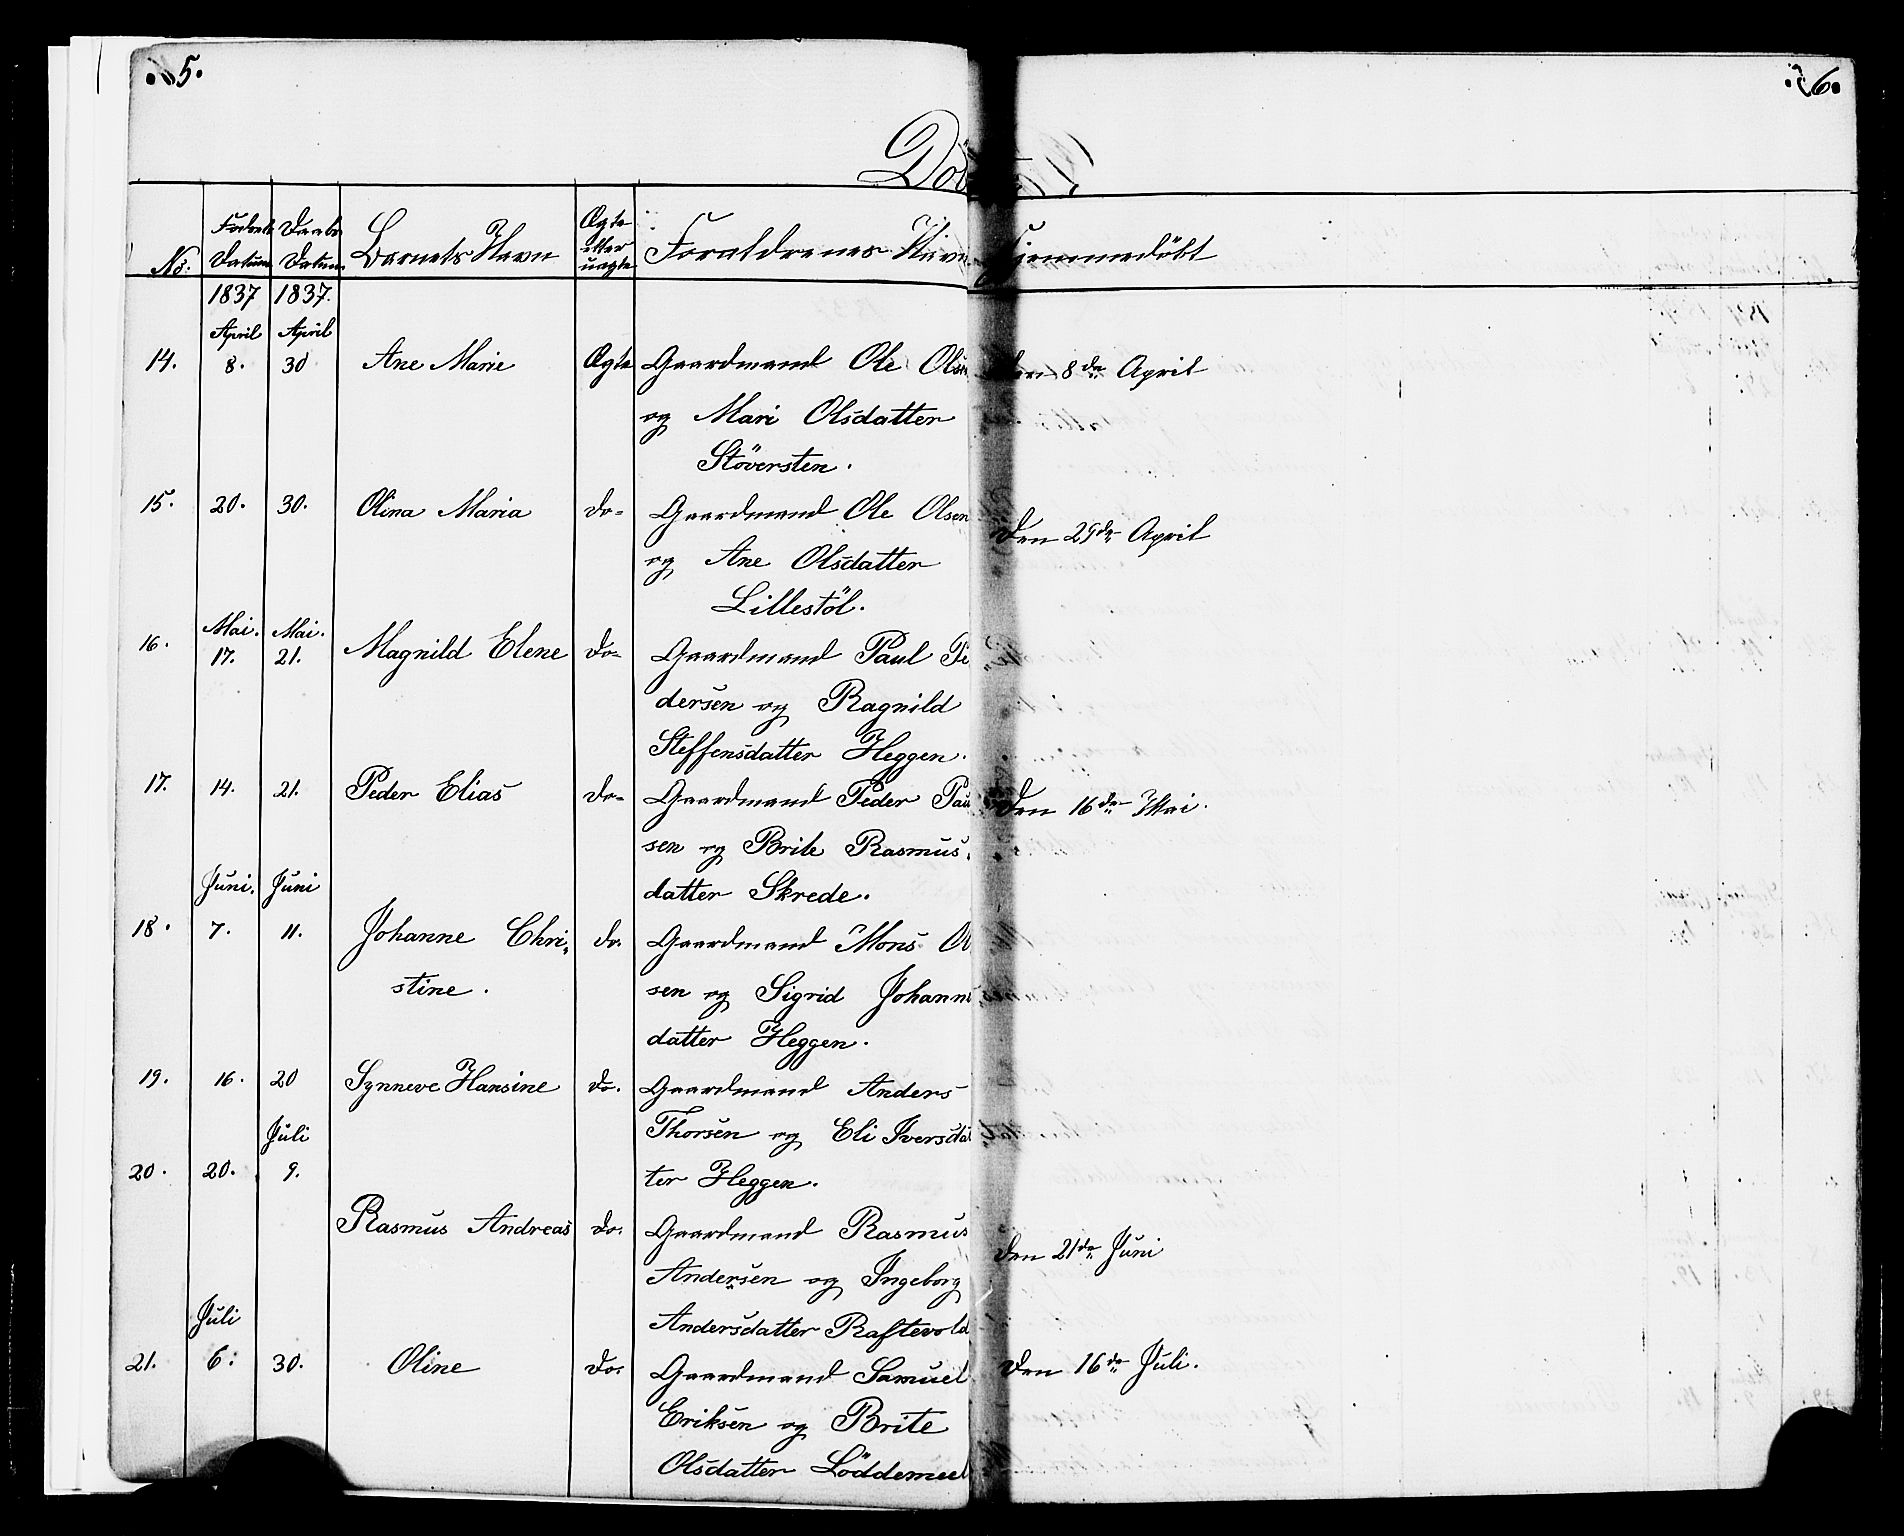 5.
6.
Döb
No.
Fødsels Datum
Daabs Datum
Barnets Navn
Ægte eller uægte
Forældrenes Navn
Hjemmedöbt
1837 1837.
April April
14. 8. 30 Ane Marie Ægte Gaardmand Ole Olsen den 8de April
og Mari Olsdatter
Stöversten.
15. 20. 30. Olina Maria do= Gaardmand Ole Olsen
Den 29de April
og Ane Olsdatter
Lillestöl.
Mai. Mai.
16. 17. 21. Magnild Elene do= Gaardmand Paul Pe
dersen og Ragnild
Steffensdatter Heggen.
17. 14. 21. Peder Elias do= Gaardmand Peder Paul Den 16de Mai.
sen og Brite Rasmus.
datter Skrede.
Juni. Juni
18. 7. 11. Johanne Chri= do. Gaardmand Mons Ol
stine. sen og Sigrid Johannes
datter Heggen.
19. 16. 20 Synneve Hansine do. Gaardmand Anders
Thorsen og Eli Iversdat
Juli
20. 20. 9. ter Heggen.
Rasmus Andreas do. Gaardmand Rasmus
Den 21de Juni
Andersen og Ingeborg
Andersdatter Raftevold
Juli
21. 6. 30. Oline do. Gaardmand Samuel Den 16de Juli.
Eriksen og Brite
Olsdatter Löddemeel